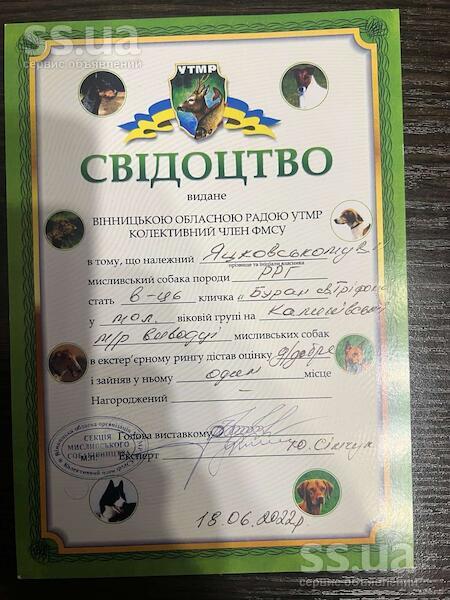 ss.ua
сервис объявлений
УТМР
СВІДОЦТВО
видане
ВІННИЦЬКОЮ ОБЛАСНОЮ РАДОЮ УТМР
КОЛЕКТИВНИЙ ЧЛЕН ФМСУ
в тому, що належний Яцковському
прізвище та ініціали власника
мисливський собака породи РРГ
стать в-ць кличка „Буран
у мол. віковій групі на Калинівській
м/р виводці мисливських собак
в екстер'єрному рингу дістав оцінку д/добре
і зайняв у ньому один місце
Нагороджений —
Голова виставкому
м.п. Експерт Ю. Сімчук
СЕКЦІЯ
МИСЛИВСЬКОГО
СОБАКІВНИЦТВА
18.06.2022р
ss.ua
сервис объявлений